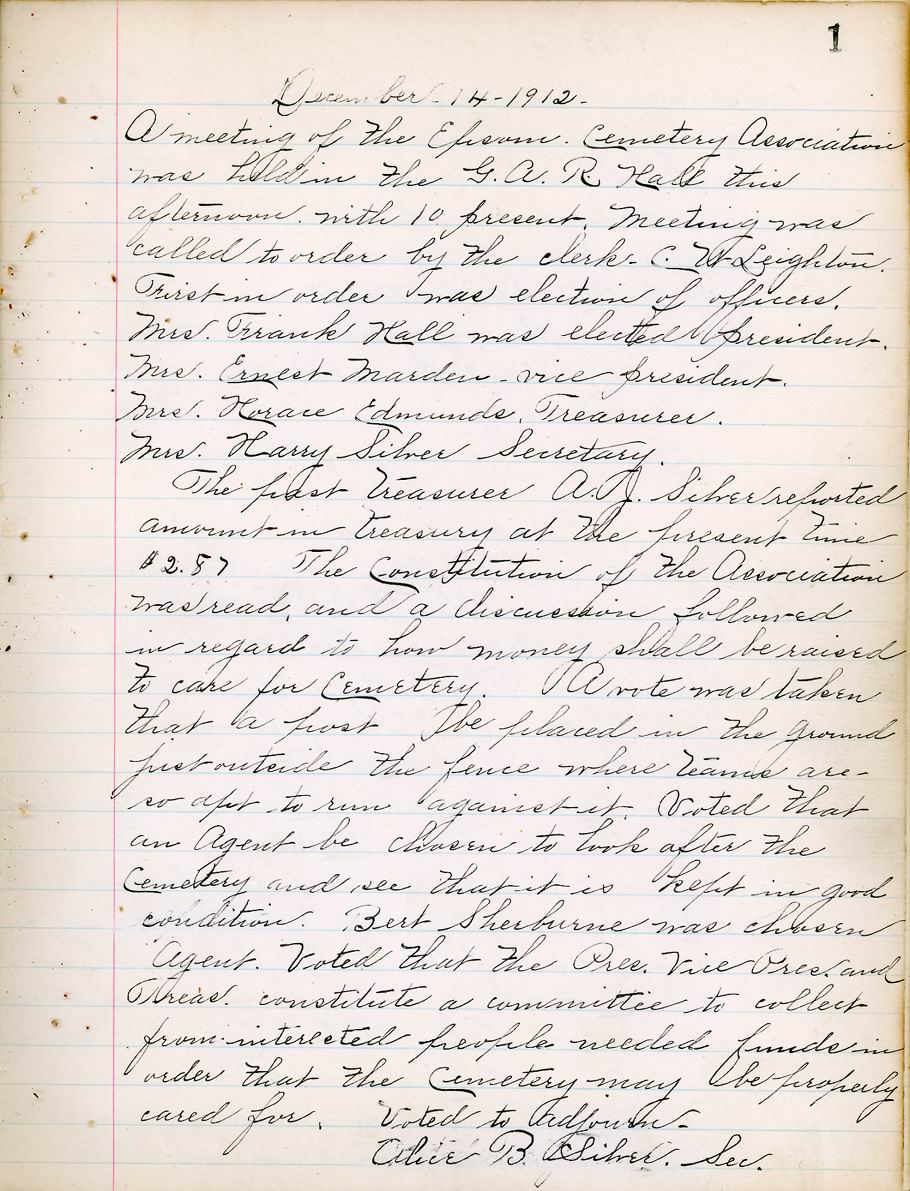 1
December - 14 - 1912 -
A meeting of the Epsom. Cemetery Association
was held in the G. A. R. Hall this
afternoon. with 10 present. Meeting was
called to order by the clerk - C. W Leighton.
First in order was election of officers.
Mrs. Frank Hall was elected president.
Mrs. Ernest Marden - vice president.
Mrs. Horace Edmunds. Treasurer.
Mrs. Harry Silver Secretary.
The past Treasurer A. J. Silver reported
amount in treasury at the present time
$2.87 The Constitution of the Association
was read, and a discussion followed
in regard to how money shall be raised
to care for Cemetery. A vote was taken
that a post be placed in the ground
just outside the fence where teams are -
so apt to run against it. Voted that
an Agent be chosen to look after the
Cemetery and see that it is kept in good
condition. Bert Sherburne was chosen
Agent. Voted that the Pres. Vice Pres. and
Treas. constitute a committee to collect
from interested people needed funds in
order that the Cemetery may be properly
cared for. Voted to adjourn -
Alice B. Silver. Sec.